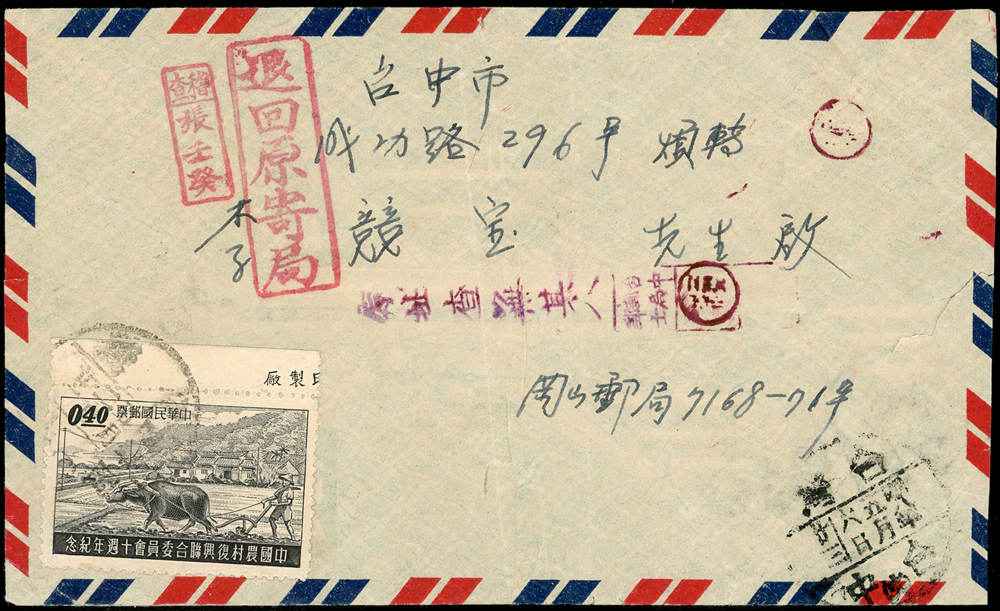 退回原寄局
稽查
張壬癸
台中市
成功路296号 煩轉
李競宝 先生啟
址查無其人
岡山郵局7168-71号
製廠
040
中華民國郵票
中國農村復興聯合委員會十週年紀念
台灣
台中